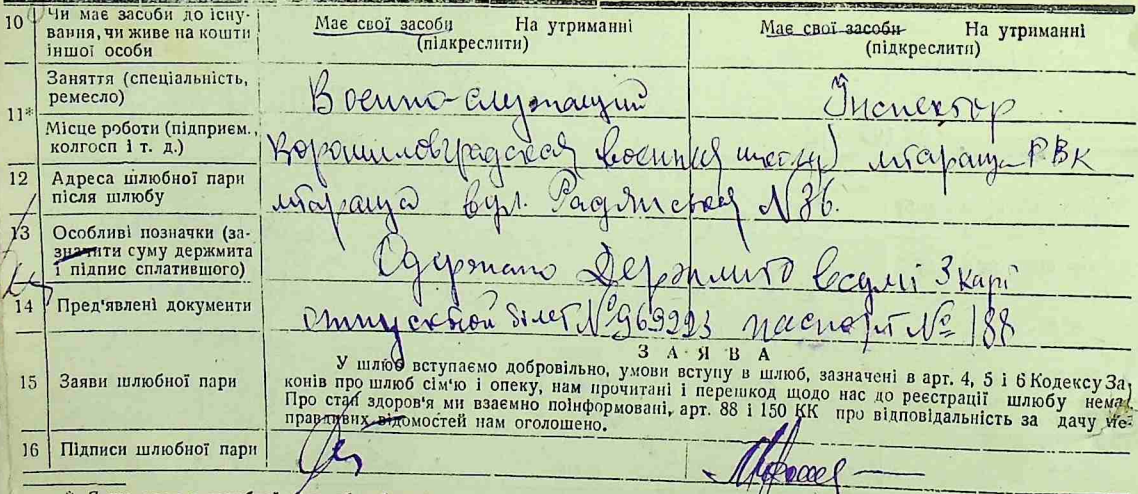 10 Чи має засоби до існування, чи живе на кошти іншої особи
Має свої засоби На утриманні
(підкреслити)
Має свої засоби На утриманні
(підкреслити)
11* Заняття (спеціальність, ремесло)
Военно-служащий
Інспектор
Місце роботи (підприєм., колгосп і т. д.)
Ворошиловградская военная школа РВК
12 Адреса шлюбної пари після шлюбу
вул. Радянская N 36.
13 Особливі позначки (зазначити суму держмита і підпис сплатившого)
Одержано Держмито 3 карб
14 Пред'явлені документи
отпускной білет № 969223 паспорт № 188
ЗАЯВА
15 Заяви шлюбної пари
У шлюб вступаємо добровільно, умови вступу в шлюб, зазначені в арт. 4, 5 і 6 Кодексу За
конів про шлюб сім'ю і опеку, нам прочитані і перешкод щодо нас до реєстрації шлюбу нема.
Про стан здоров'я ми взаємно поінформовані, арт. 88 і 150 КК про відповідальність за дачу не-
правдивих відомостей нам оголошено.
16 Підписи шлюбної пари